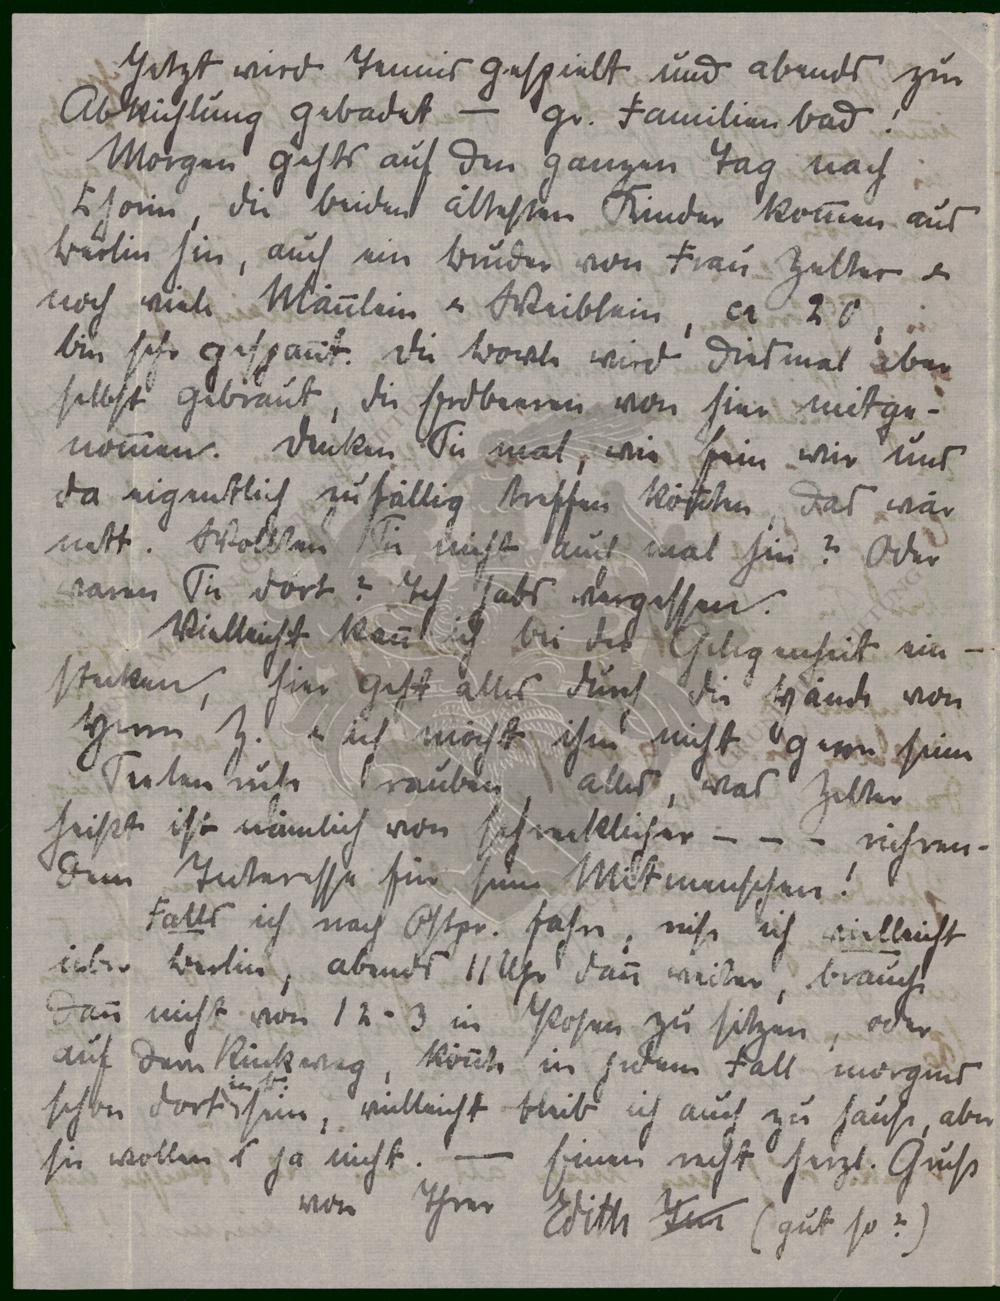 Jetzt wird Tennis gespielt und abends zur
Abkühlung gebadet — gr. Familienbad!
Morgen gehts auf den ganzen Tag nach
Chorin, die beiden ältesten Kinder kom̅en aus
Berlin hin, auch ein Bruder von Frau Zelter &
noch viele Män̅lein & Weiblein, ca 20,
bin sehr gespan̅t. Die Bowle wird diesmal aber
selbst gebraut, die Erdbeeren von hier mitge-
nom̅en. Denken Sie mal, wie fein wir uns
da eigentlich zufällig treffen kön̅ten, das wär
nett. Wollten Sie nicht auch mal hin? Oder
waren Sie dort? Ich habs vergessen.
Vielleicht kan̅ ich bei der Gelegenheit ein-
stecken, hier geht alles durch die Hände von
Herrn Z. & ich möcht ihm nicht gern seine
Seelenruhe rauben, alles, was Zelter
heißt ist nämlich von schrecklicher - - - rühren-
dem Interesse für seine Mitmenschen!
Falls ich nach Ostpr. fahre, reise ich vielleicht
über Berlin, abends 11 Uhr dan̅ weiter, brauche
dan̅ nicht von 12-3 in Posen zu sitzen, oder
auf dem Rückweg, kön̅te in jedem Fall morgens
schon dort sein, vielleicht bleib ich auch zu Hause, aber
sie wollen's ja nicht. — Einen recht herzl. Gruß
von Ihrer Edith (gut so?)